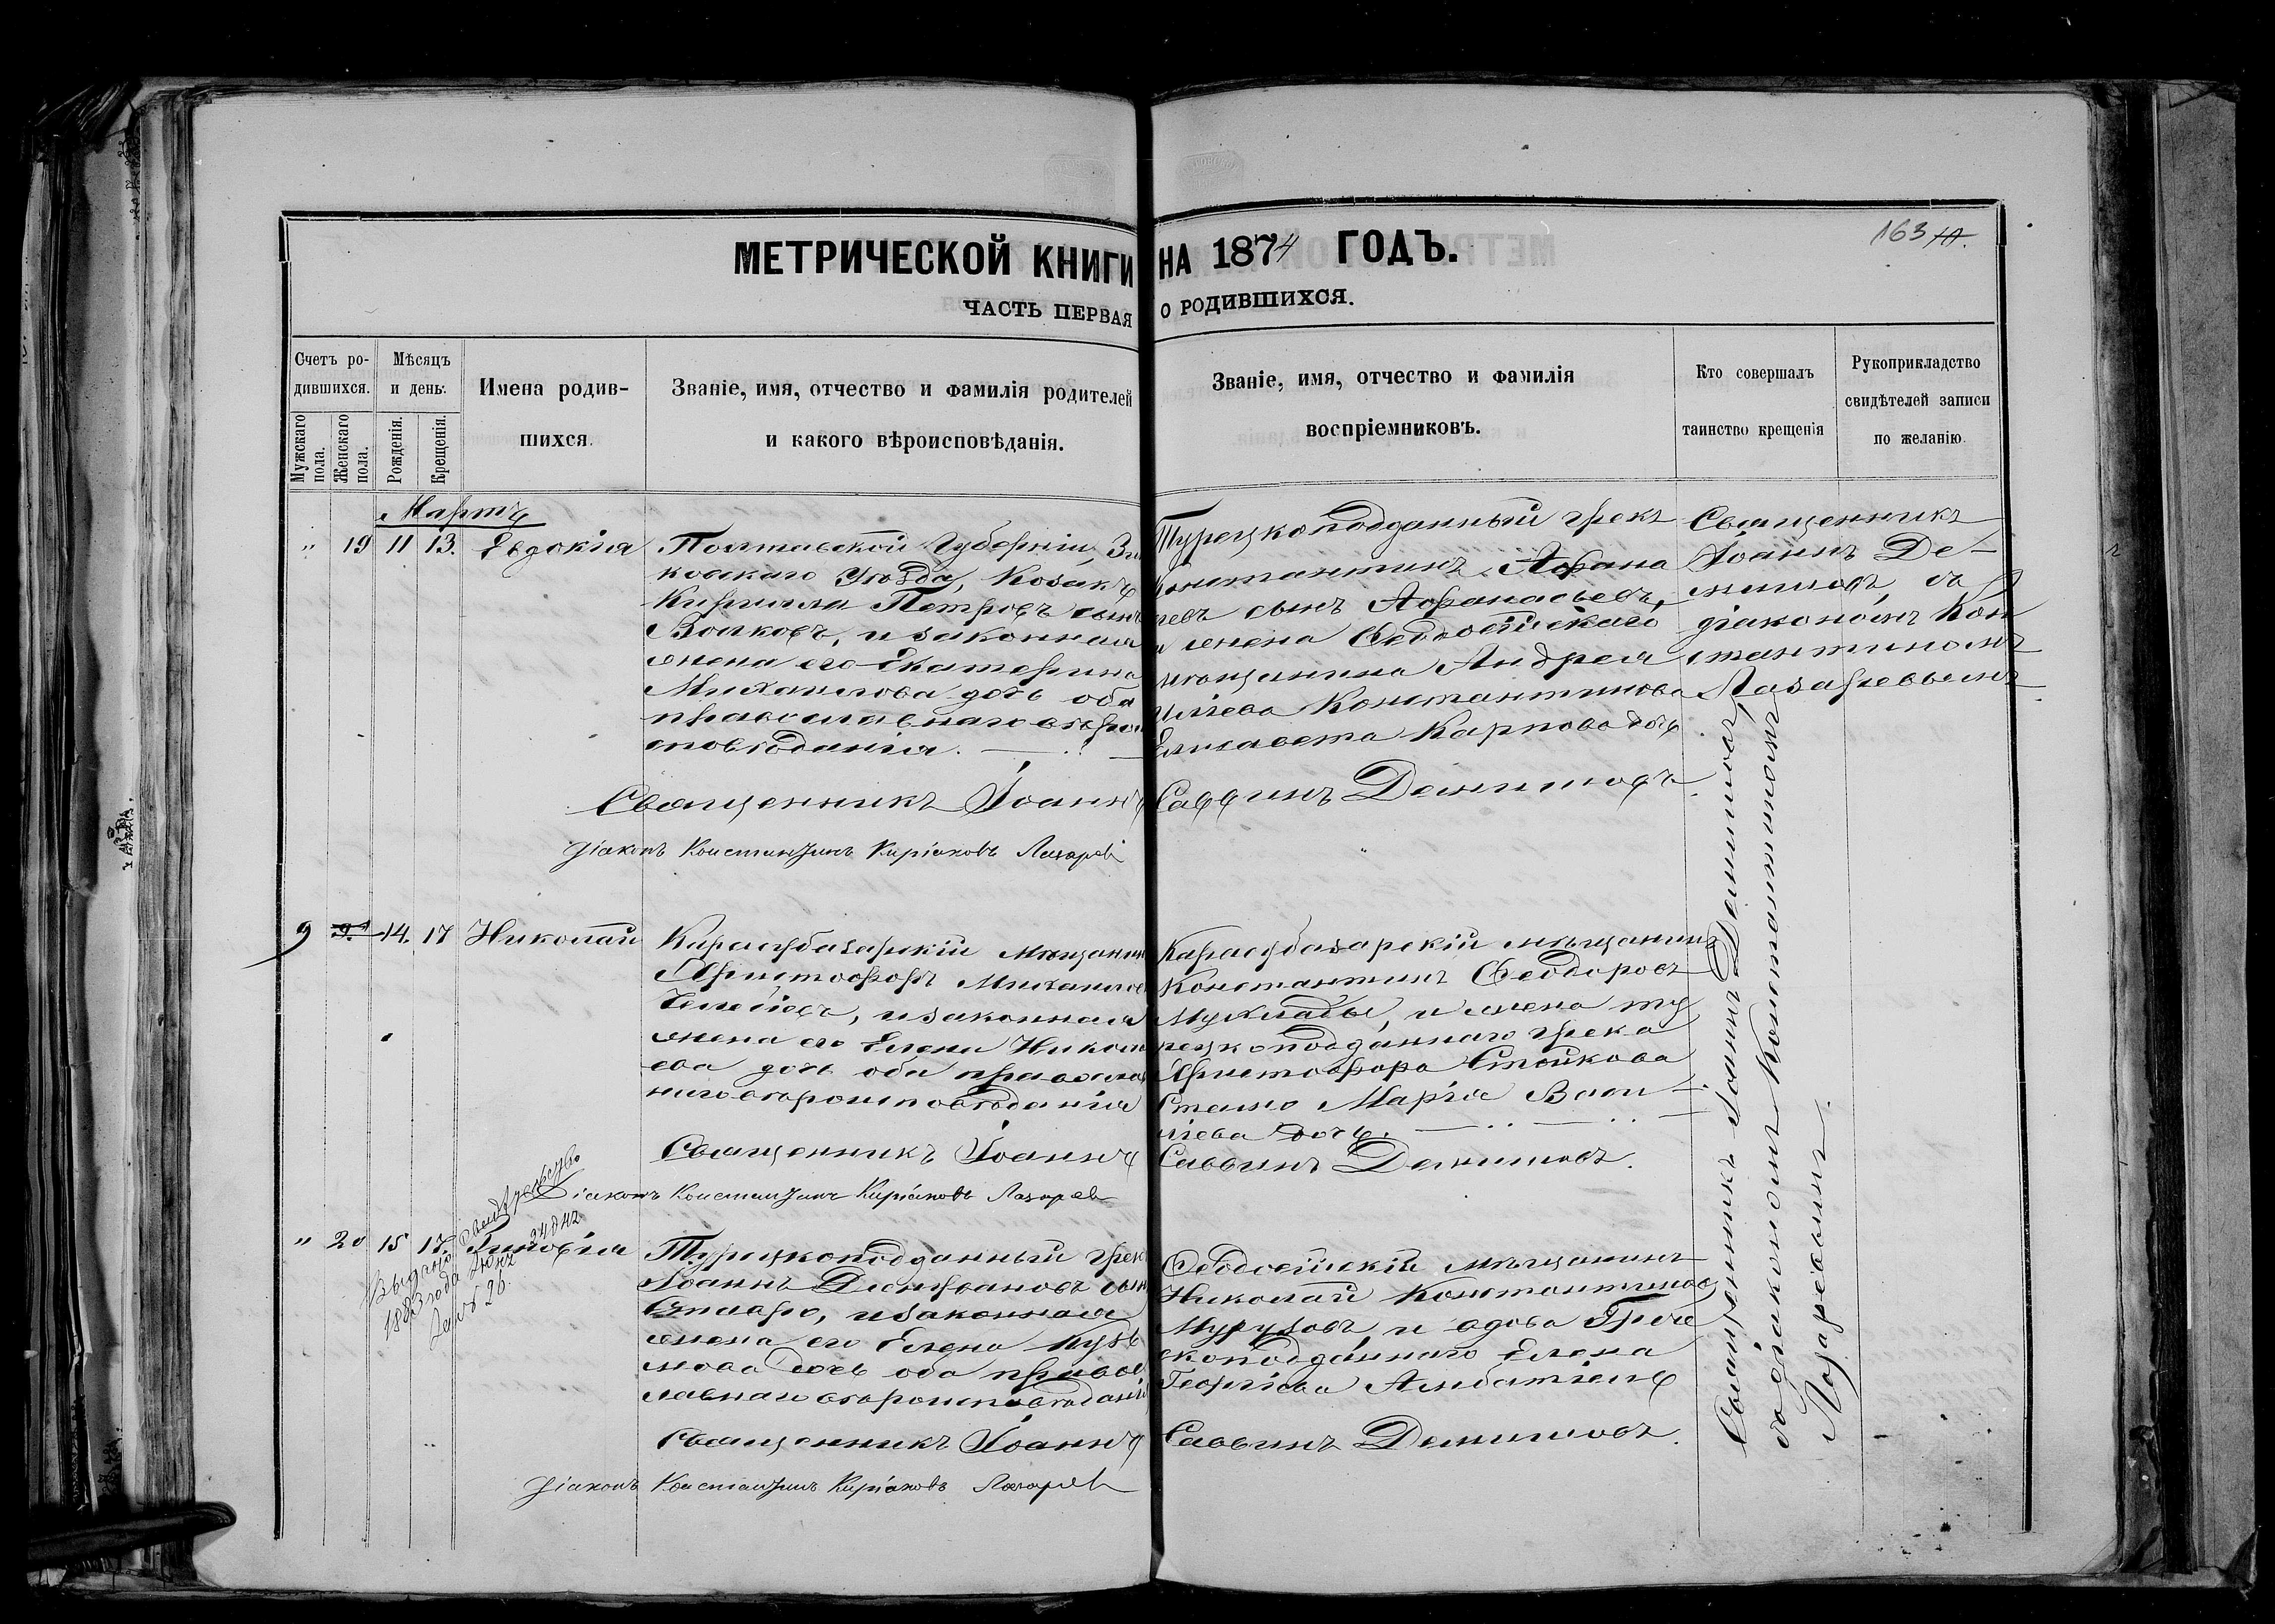 163
МЕТРИЧЕСКОЙ КНИГИ НА 1874 ГОДЪ.
ЧАСТЬ ПЕРВАЯ О РОДИВШИХСЯ.
Счетъ ро-
дившихся.
Мужскаго пола.
Женскаго пола.
Мѣсяцъ
и день.
Рожденія.
Крещенія.
Имена родив-
шихся.
Званіе, имя, отчество и фамилія родителей
и какого вѣроисповѣданія.
Званіе, имя, отчество и фамилія
воспріемниковъ.
Кто совершалъ
таинство крещенія
Рукоприкладство
свидѣтелей записи
по желанію.
Мартъ
" 19 11 13. Евдокія
Полтавской Губерніи, Зи
ковскаго Уѣзда, Козакъ
Кириллъ Петровъ сынъ
Волковъ, и законная
жена его Екатерина
Михаилова дочь оба
православнаго вѣрои
сповѣданія.
Турецкоподданный грекъ
Константинъ Афана
сынъ Афанасьевъ,
и жена Ѳеодосійскаго
мѣщанина Андрея
Константинова
Елисавета Карпова дочь
Священникъ
Іоаннъ Де-
жимовъ, съ
діакономъ Кон
стантиномъ
Лазаревымъ
Священникъ Іоаннъ Саввинъ Дежимовъ.
Діаконъ Константинъ Киріаковъ Лазаревъ
9 14. 17 Николай
Карасубазарскій Мѣщанинъ
Христофоръ Михаилов
и законная
жена его Елена Никола
ева дочь оба православ
наго вѣроисповѣданія
Карасубазарскій мѣщанинъ
Константинъ Ѳеодоровъ
и жена ту
рецкоподданнаго грека
Христофора Стойкова
Марія Васи
ліева дочь.
Священникъ Іоаннъ Саввинъ Дежимовъ.
Діаконъ Константинъ Киріаковъ Лазаревъ
" 20 15 17. Зиновія
Выдано свидѣтельство
1883 года Іюня
26.
Турецкоподданный грек
Іоаннъ сын
и законная
жена его Елена Кузь
мова дочь оба правос
лавнаго вѣроисповѣданія
Ѳеодосійскій мѣщанинъ
Николай Константинов
Мурузовъ, и вдова Грече
скоподданнаго Елена
Георгіева
Священникъ Іоаннъ Дежимовъ,
съ діакономъ Константиномъ
Лазаревымъ.
Священникъ Іоаннъ Саввинъ Дежимовъ.
Діаконъ Константинъ Киріаковъ Лазаревъ